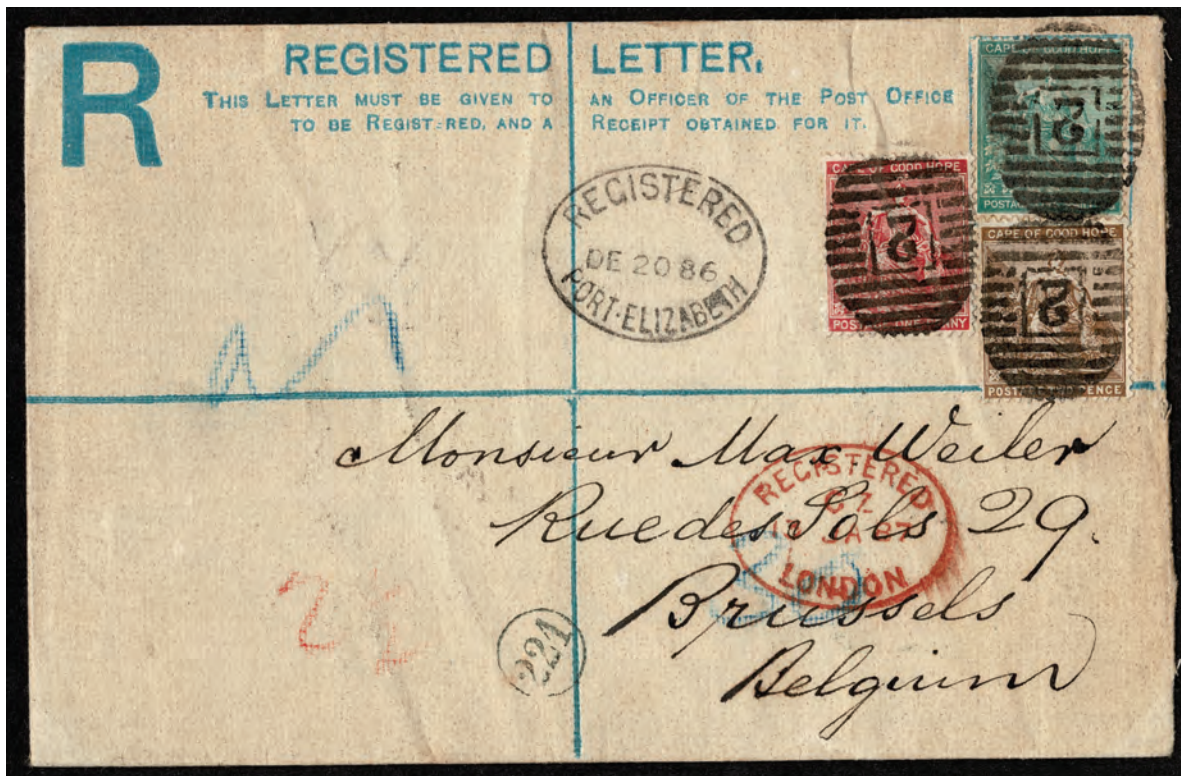 R
REGISTERED LETTER.
THIS LETTER MUST BE GIVEN TO AN OFFICER OF THE POST OFFICE
TO BE REGISTERED, AND A RECEIPT OBTAINED FOR IT.
CAPE OF GOOD HOPE
2
POSTAGE
CAPE OF GOOD HOPE
2
POSTAGE ONE PENNY
REGISTERED
DE 20 86
PORT-ELIZABETH
CAPE OF GOOD HOPE
2
POSTAGE TWO PENCE
Monsieur Max Weiler
Rue des Sols 29.
Brussels
Belgium
REGISTERED
JA 87
LONDON
221